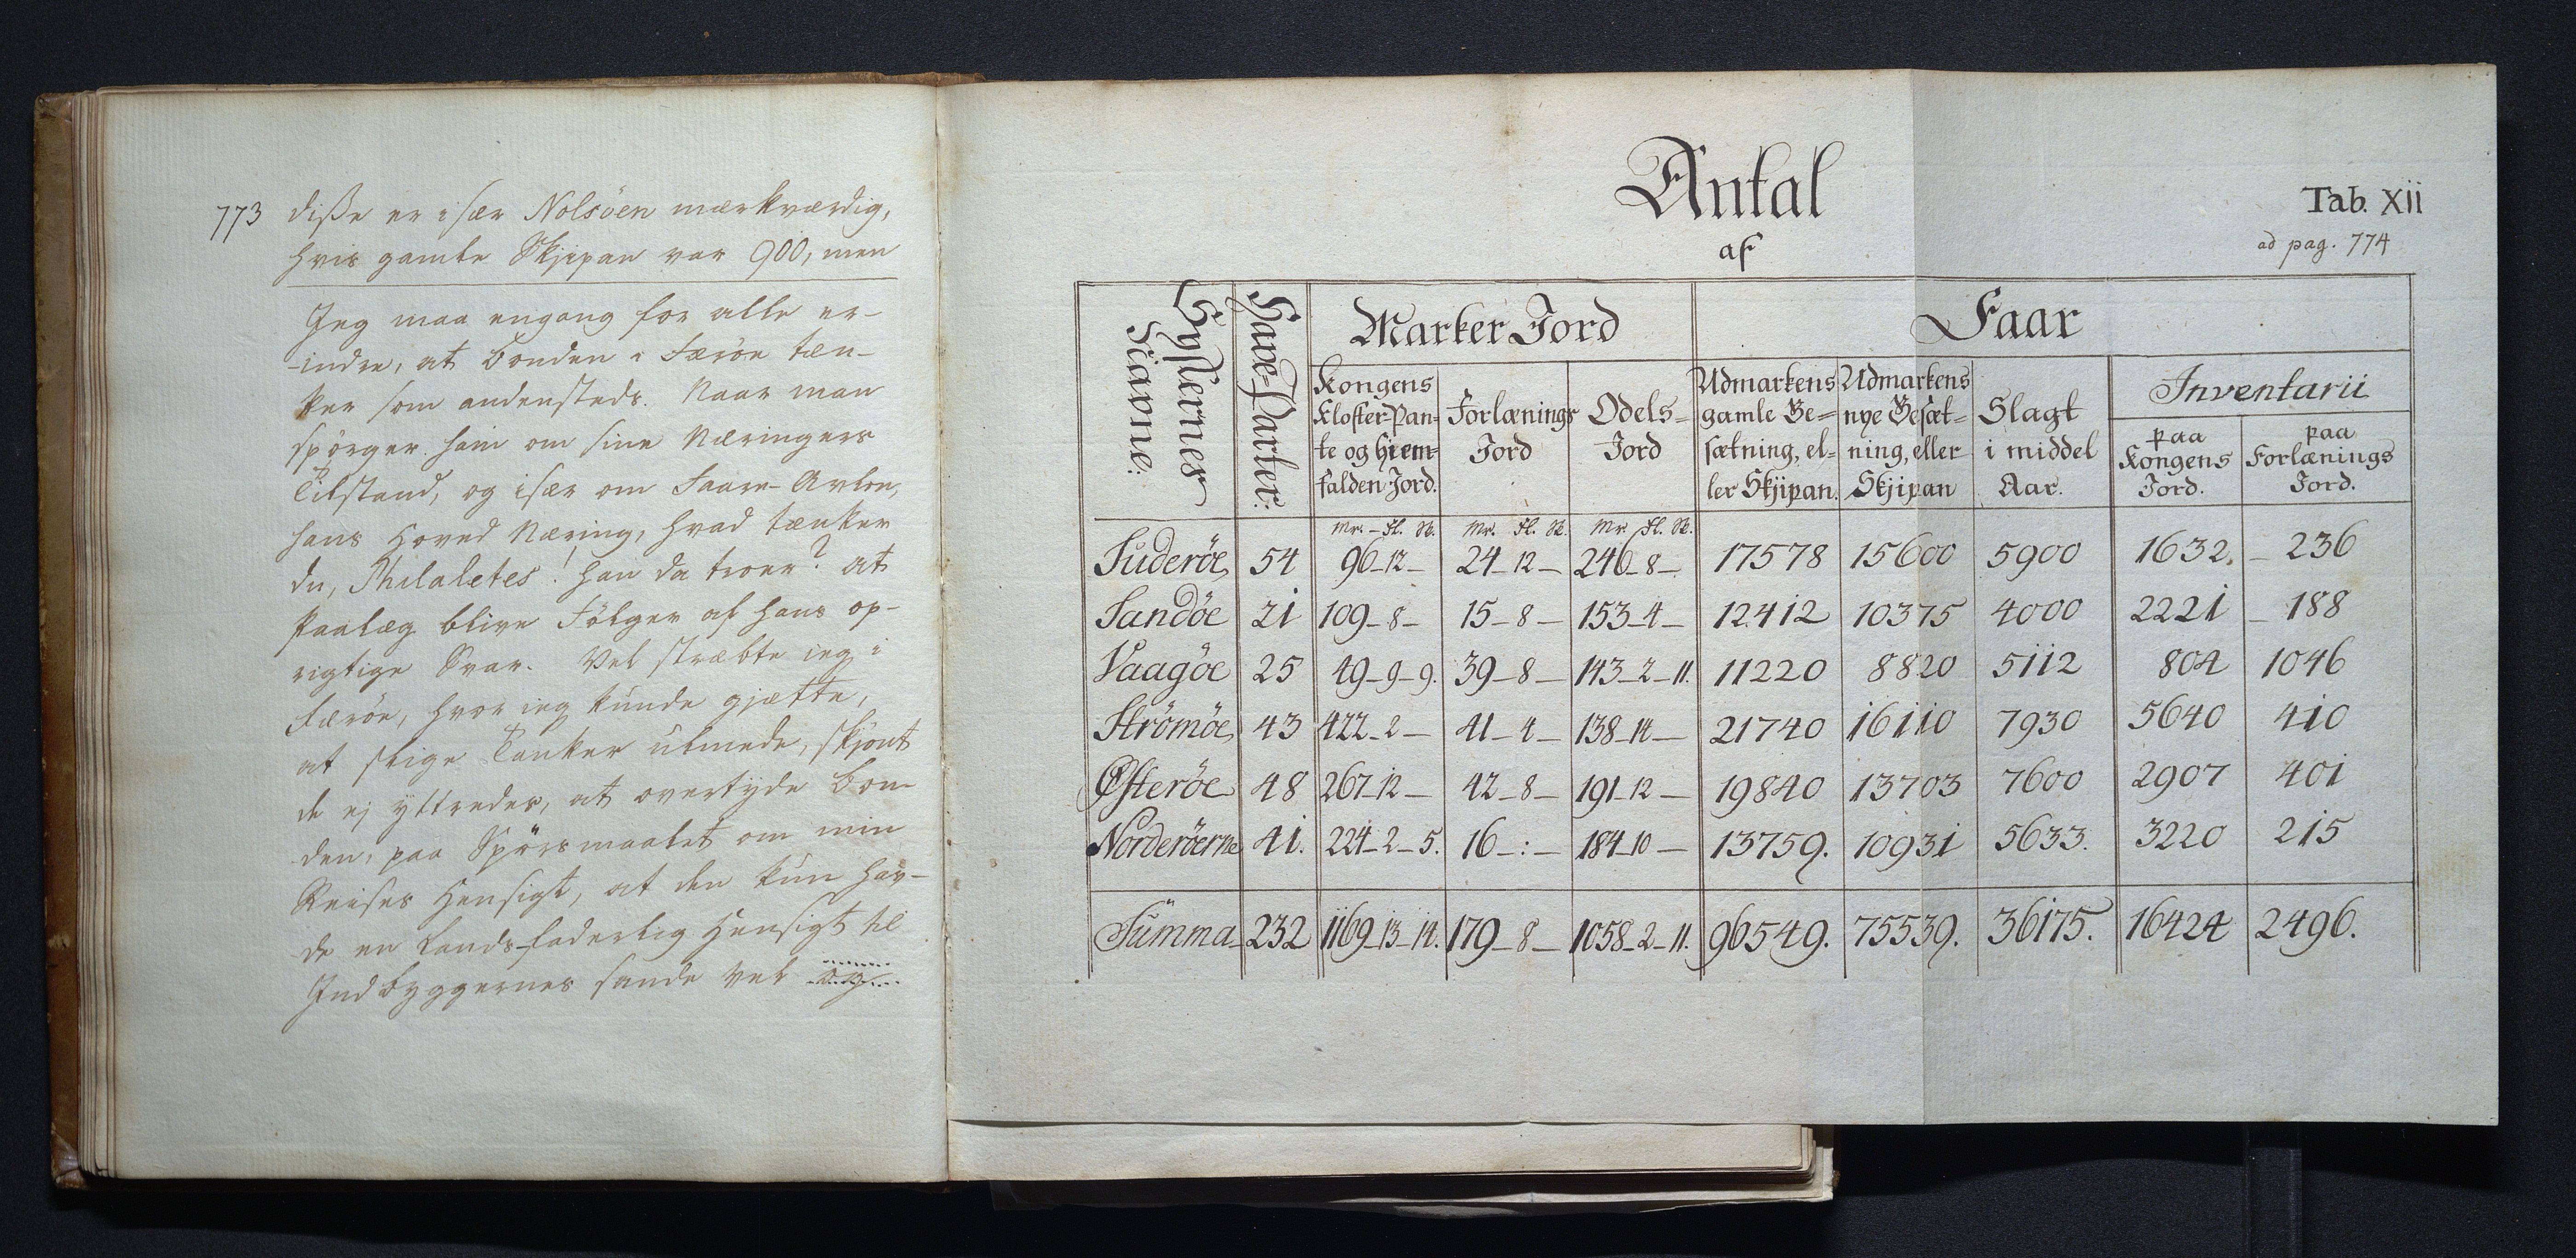 773 diße er især Nolsöen mærkværdig,
hvis gamle Skjipan var 900, men
Jeg maa engang for alle er-
-indre, at bonden i Færöe tæn-
ker som andensteds. Naar man
spörger ham om sine Næringers
Tilstand, og især om Faare-Avlen,
hans Hoved Næring, hvad tænker
du, Philaletes! han da troer? at
Paalæg blive Fölger af hans op-
rigtige Svar. Vel stræbte ieg i
Færöe, hvor ieg kunde giætte,
at slige Tanker ulmede, skjönt
de ej yttredes, at overtyde bon-
den, paa Spörsmaalet om min
Reises Hensigt, at den kun hav-
de en Lands-faderlig Hensigt til
Indbyggernes sande Vel og
Antal
af
Tab. XII
ad pag. 774
Sysslernes Naavne.
Have-Parter.
Marker Jord
Faar
Kongens Kloster-Pan-te og hiem-falden Jord.
Forlænings Jord
Odels-Jord
Udmarkens gamle Be-sætning, el-ler Skjipan.
Udmarkens nye Besæt-ning, eller Skjipan
Slagt i middel Aar.
Inventarii
paa Kongens Jord.
paa Forlænings Jord.
Mr. - Fl. Sk. Mr. Fl. Sk. Mr. Fl. Sk.
Suderöe 54 96-12- 24-12- 246-8- 17578 15600 5900 1632. - 236
Sandöe 21 109-8- 15-8- 153-4- 12412 10375 4000 2221 - 188
Vaagöe 25 49-9-9. 39-8- 143-2-11. 11220 8820 5112 804 1046
Strömöe 43 422-2- 41-4- 138-14- 21740 16110 7930 5640 410
Østeröe 48 267-12- 42-8- 191-12- 19840 13703 7600 2907 401
Norderöerne 41. 224-2-5. 16-:- 184-10- 13759. 10931 5633. 3220 215
Summa 232 1169-13-14. 179-8- 1058-2-11. 96549. 75539. 36175. 16424 2496.